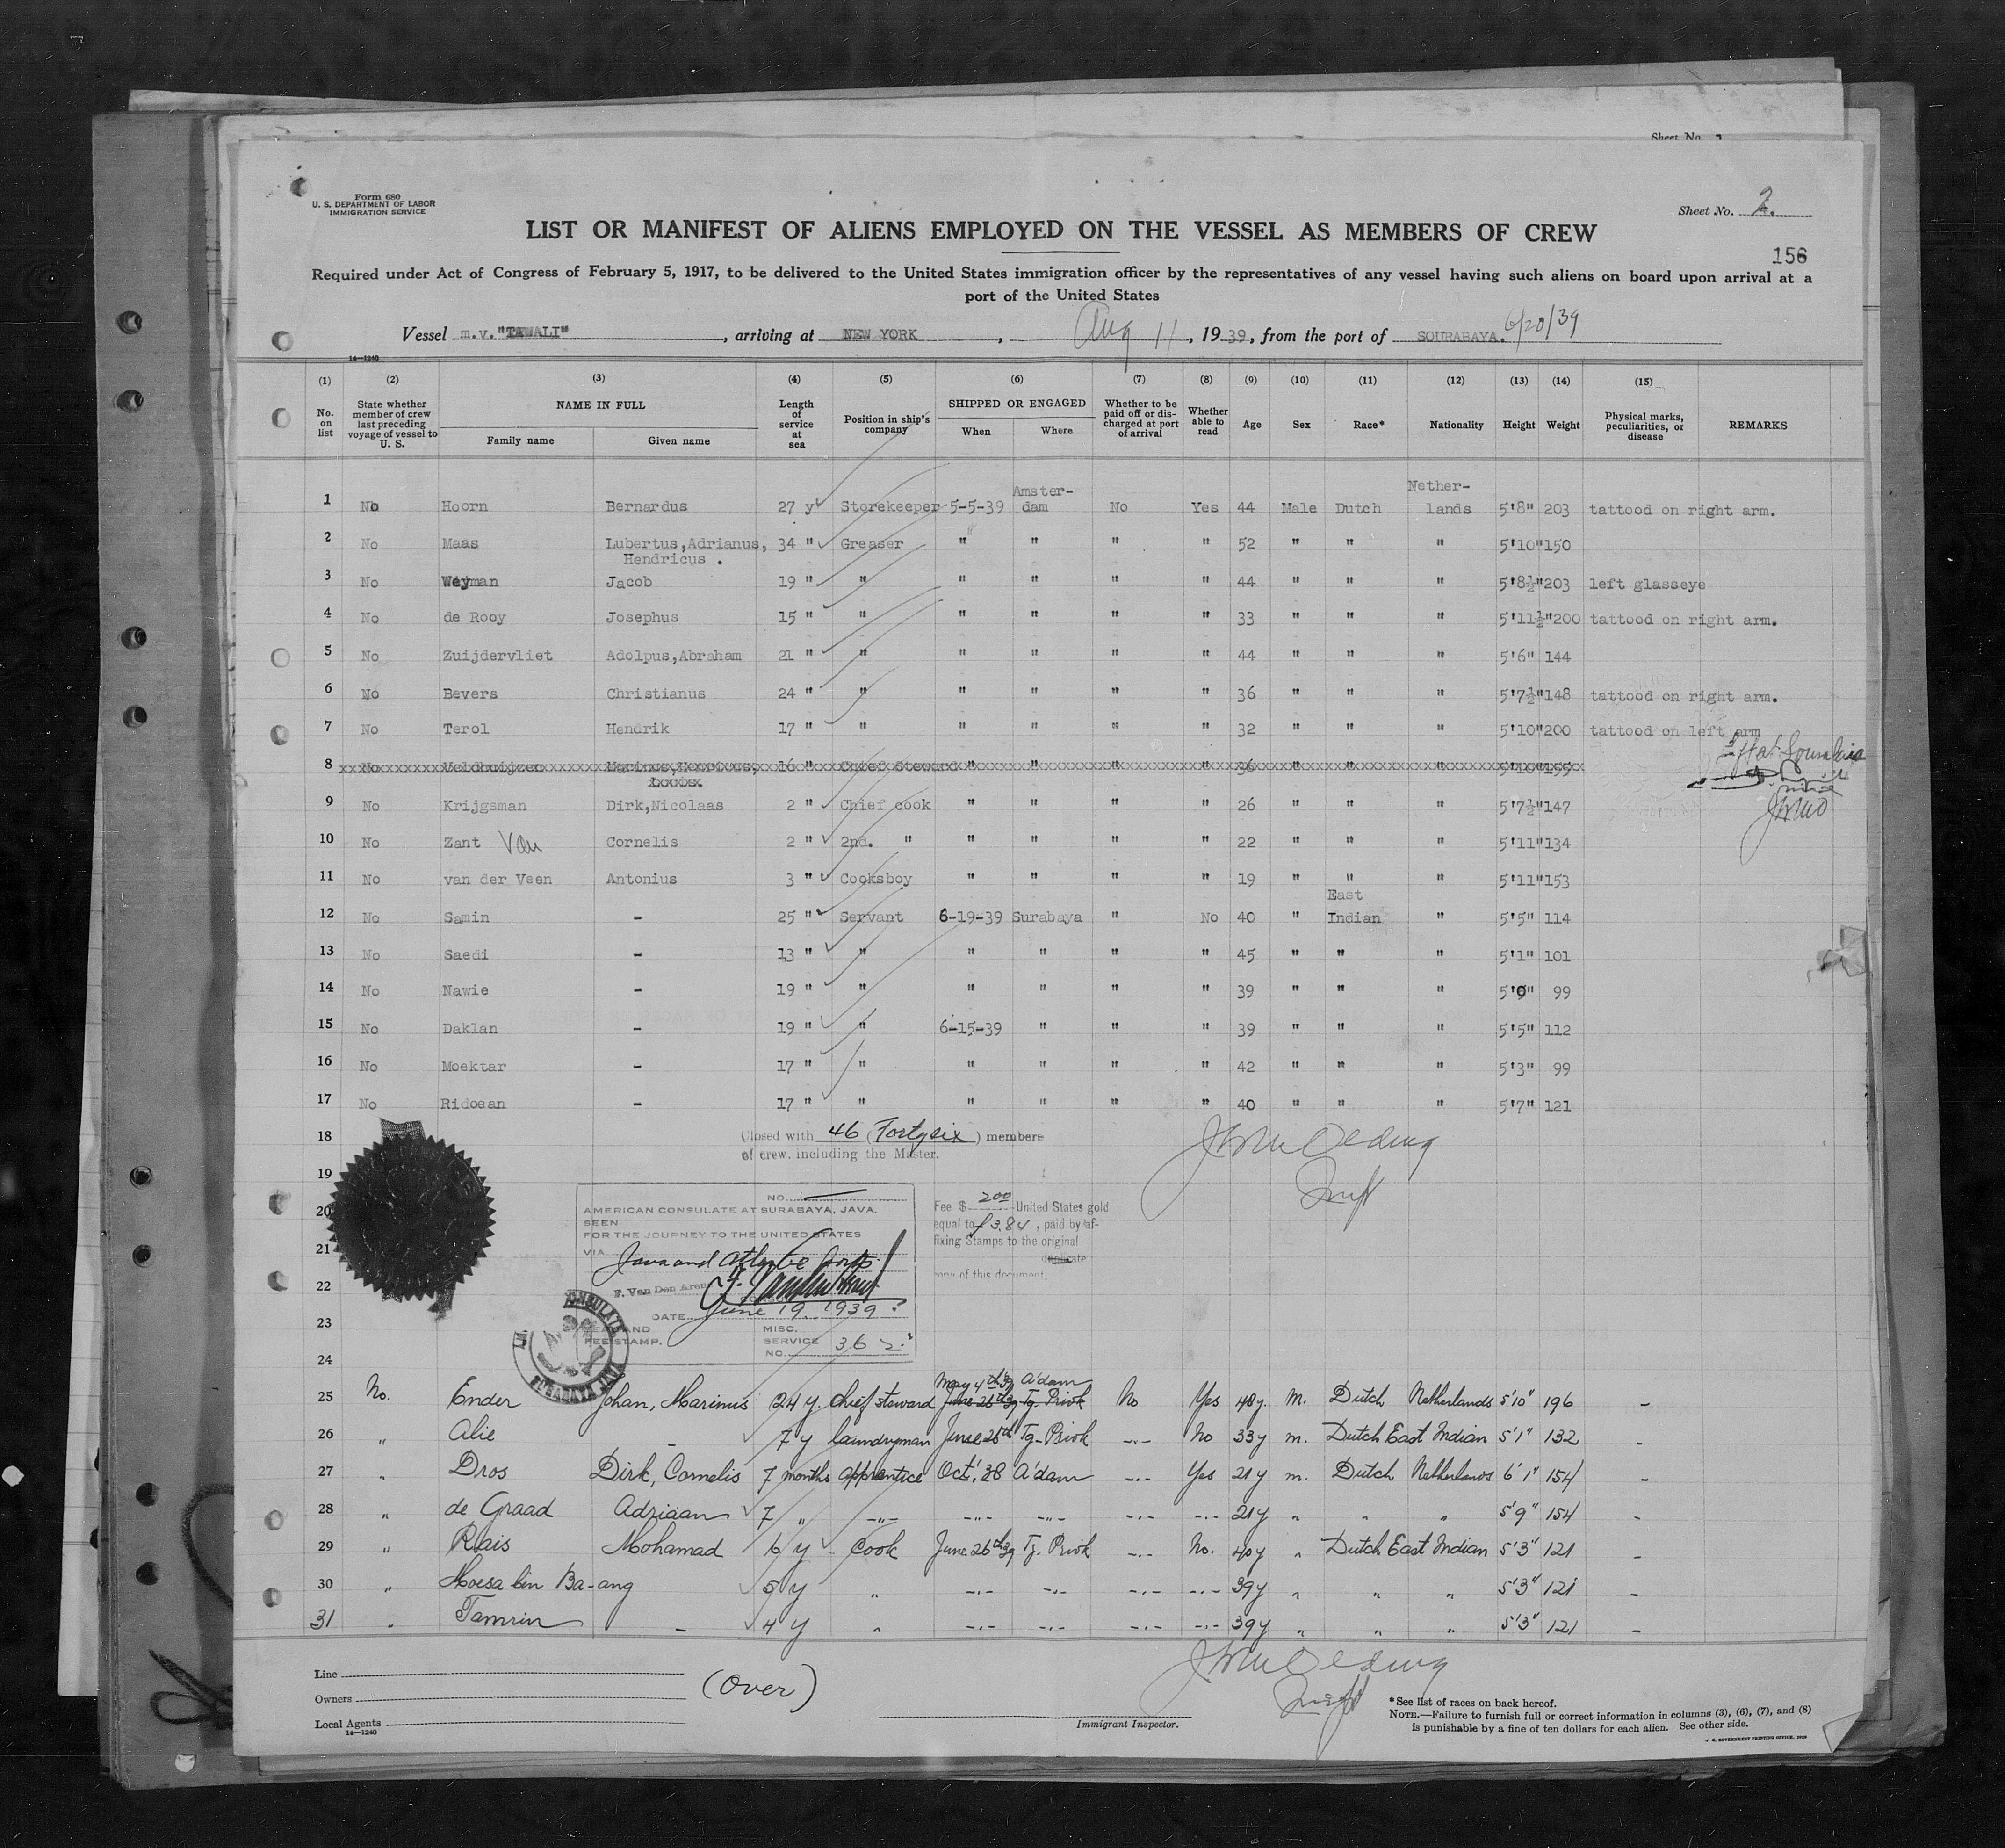 Sheet No.
Form 680
U. S. DEPARTMENT OF LABOR
IMMIGRATION SERVICE
Sheet No. 2.
LIST OR MANIFEST OF ALIENS EMPLOYED ON THE VESSEL AS MEMBERS OF CREW
156
Required under Act of Congress of February 5, 1917, to be delivered to the United States immigration officer by the representatives of any vessel having such aliens on board upon arrival at a
port of the United States
Vessel m.v. "TAWALI", arriving at NEW YORK, Aug 11, 1939, from the port of SOURABAYA. 6/20/39
14—1240
(1) (2) (3) (4) (5) (6) (7) (8) (9) (10) (11) (12) (13) (14) (15)
No. on list State whether member of crew last preceding voyage of vessel to U. S. NAME IN FULL Family name Given name Length of service at sea Position in ship's company SHIPPED OR ENGAGED When Where Whether to be paid off or discharged at port of arrival Whether able to read Age Sex Race* Nationality Height Weight Physical marks, peculiarities, or disease REMARKS
1 No Hoorn Bernardus 27 y Storekeeper 5-5-39 Amster-dam No Yes 44 Male Dutch Nether-lands 5'8" 203 tattood on right arm.
2 No Maas Lubertus,Adrianus, Hendricus . 34 " Greaser " " " " 52 " " " 5'10" 150
3 No Weyman Jacob 19 " " " " " " 44 " " " 5'8½" 203 left glasseye
4 No de Rooy Josephus 15 " " " " " " 33 " " " 5'11½" 200 tattood on right arm.
5 No Zuijdervliet Adolpus,Abraham 21 " " " " " " 44 " " " 5'6" 144
6 No Bevers Christianus 24 " " " " " " 36 " " " 5'7½" 148 tattood on right arm.
7 No Terol Hendrik 17 " " " " " " 32 " " " 5'10" 200 tattood on left arm
8 No Veldhuijzen Marinus,Henricus, Louis. 16 " Chief Steward " " " " 36 " " " 5'10" 155
9 No Krijgsman Dirk,Nicolaas 2 " Chief cook " " " " 26 " " " 5'7½" 147
10 No Zant Van Cornelis 2 " 2nd. " " " " " 22 " " " 5'11" 134
11 No van der Veen Antonius 3 " Cooksboy " " " " 19 " " " 5'11" 153
12 No Samin - 25 " Servant 6-19-39 Surabaya " No 40 " East Indian " 5'5" 114
13 No Saedi - 13 " " " " " " 45 " " " 5'1" 101
14 No Nawie - 19 " " " " " " 39 " " " 5'0" 99
15 No Daklan - 19 " " 6-15-39 " " " 39 " " " 5'5" 112
16 No Moektar - 17 " " " " " " 42 " " " 5'3" 99
17 No Ridoean - 17 " " " " " " 40 " " " 5'7" 121
18 Closed with 46 (Fortysix) members
of crew, including the Master.
19
NO.
20 AMERICAN CONSULATE AT SURABAYA, JAVA.
SEEN
FOR THE JOURNEY TO THE UNITED STATES
21 VIA Java and other
22 F. Van Den Aren
DATE June 19, 1939
23 SEAL AND FEE STAMP. MISC. SERVICE NO. 362
Fee $ 2.00 United States gold
equal to f3.84, paid by af-
fixing Stamps to the original
duplicate
copy of this document.
CONSULATE
SURABAYA JAVA
24
25 No. Ender Johan, Marinus 24 y. chief steward May 4th 39 June 26th 39 A'dam Tg. Priok No Yes 48y. M. Dutch Netherlands 5'10" 196 -
26 " Alie - 7 y laundryman June 26th Tg-Priok -"- No 33y m. Dutch East Indian 5'1" 132 -
27 " Dros Dirk, Cornelis 7 months apprentice Oct. '38 A'dam -"- Yes 21y m. Dutch Netherlands 6'1" 154 -
28 " de Graad Adriaan 7 " -"- -"- -"- -"- -"- 21y " " " 5'9" 154 -
29 " Rais Mohamad 16 y Cook June 26th 39 Tg. Priok -"- No. 40y " Dutch East Indian 5'3" 121 -
30 " Moesa bin Ba-ang 5 y " -"- -"- -"- -"- 39y " " " 5'3" 121 -
31 " Tamrin - 4 y " -"- -"- -"- -"- 39y " " " 5'3" 121 -
Line
Owners
Local Agents
14—1240
(Over)
Immigrant Inspector.
*See list of races on back hereof.
NOTE.—Failure to furnish full or correct information in columns (3), (6), (7), and (8)
is punishable by a fine of ten dollars for each alien. See other side.
U. S. GOVERNMENT PRINTING OFFICE,